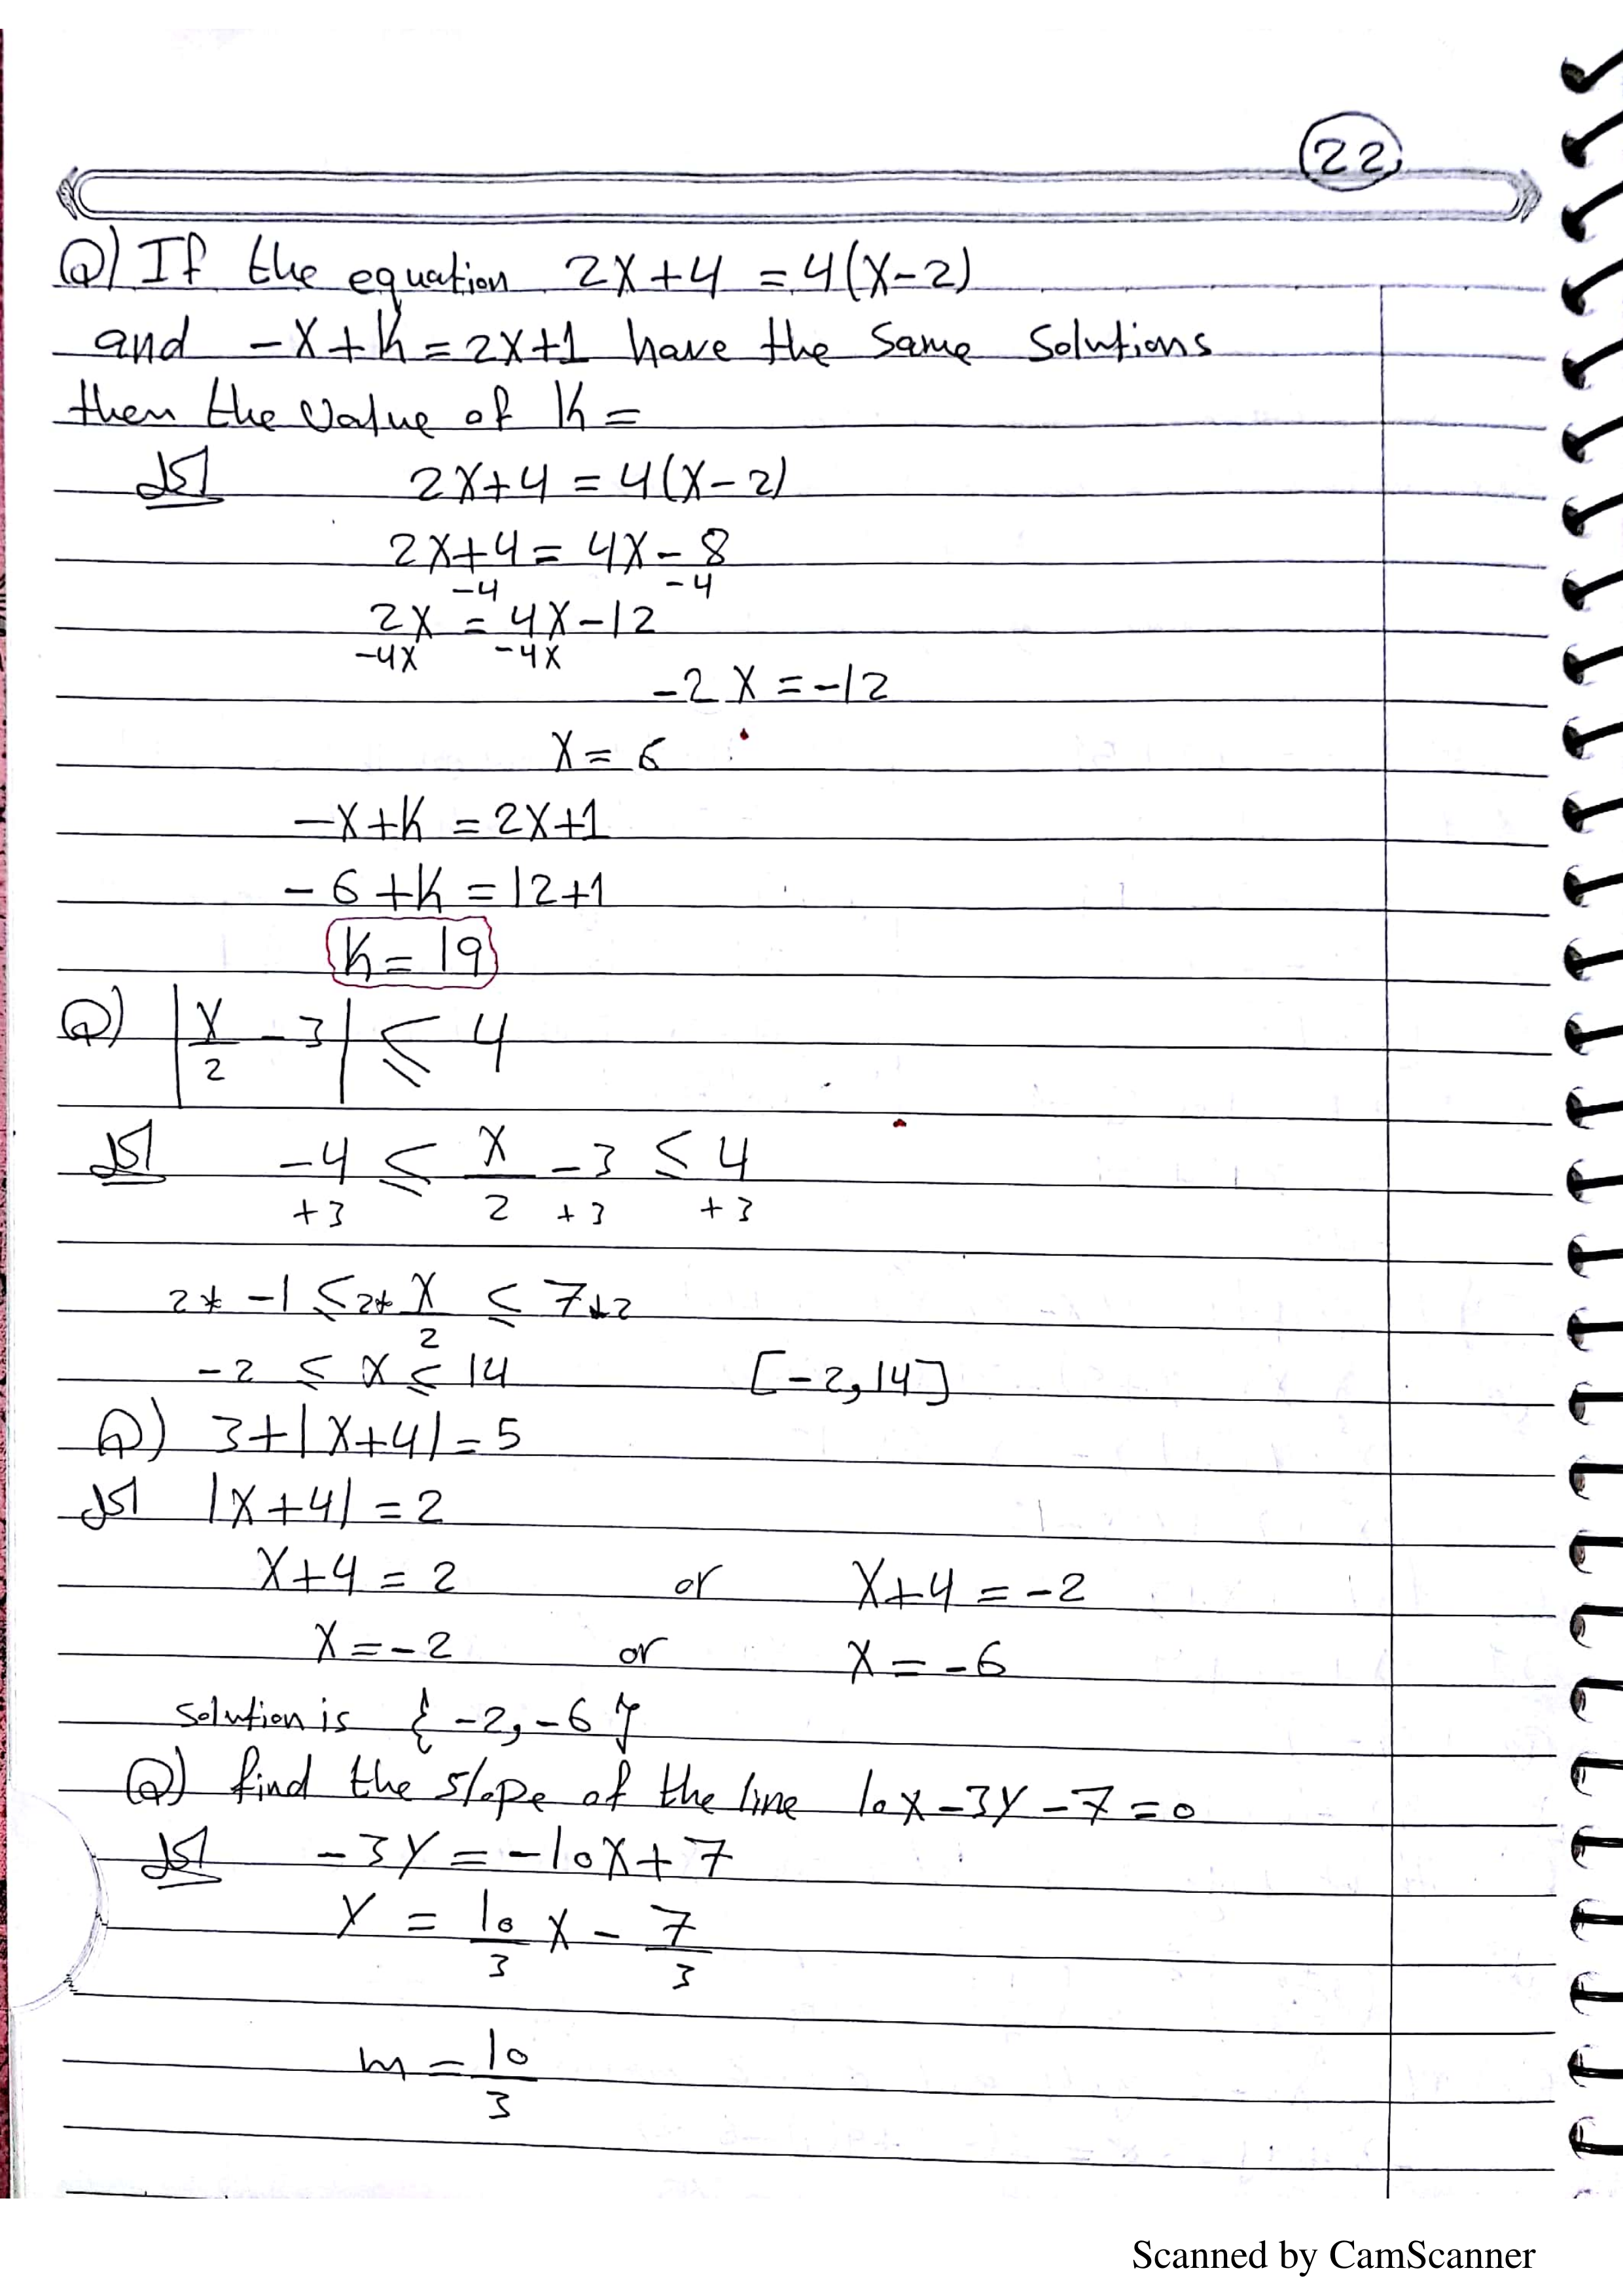 22
Q) If the equation 2X+4 = 4(X-2)
and -X+K = 2X+1 have the same solutions
then the value of K =
الحل 2X+4 = 4(X-2)
2X+4 = 4X-8
-4 -4
2X = 4X-12
-4X -4X
-2X = -12
X = 6
-X+K = 2X+1
-6+K = 12+1
K = 19
Q) |X/2 - 3| ≤ 4
الحل -4 ≤ X/2 - 3 ≤ 4
+3 +3 +3
2* -1 ≤ 2* X/2 ≤ 7*2
-2 ≤ X ≤ 14 [-2,14]
Q) 3+|X+4| = 5
الحل |X+4| = 2
X+4 = 2 or X+4 = -2
X = -2 or X = -6
solution is {-2,-6}
Q) find the slope of the line 10X-3Y-7=0
الحل -3Y = -10X+7
Y = 10/3 X - 7/3
m = 10/3
Scanned by CamScanner